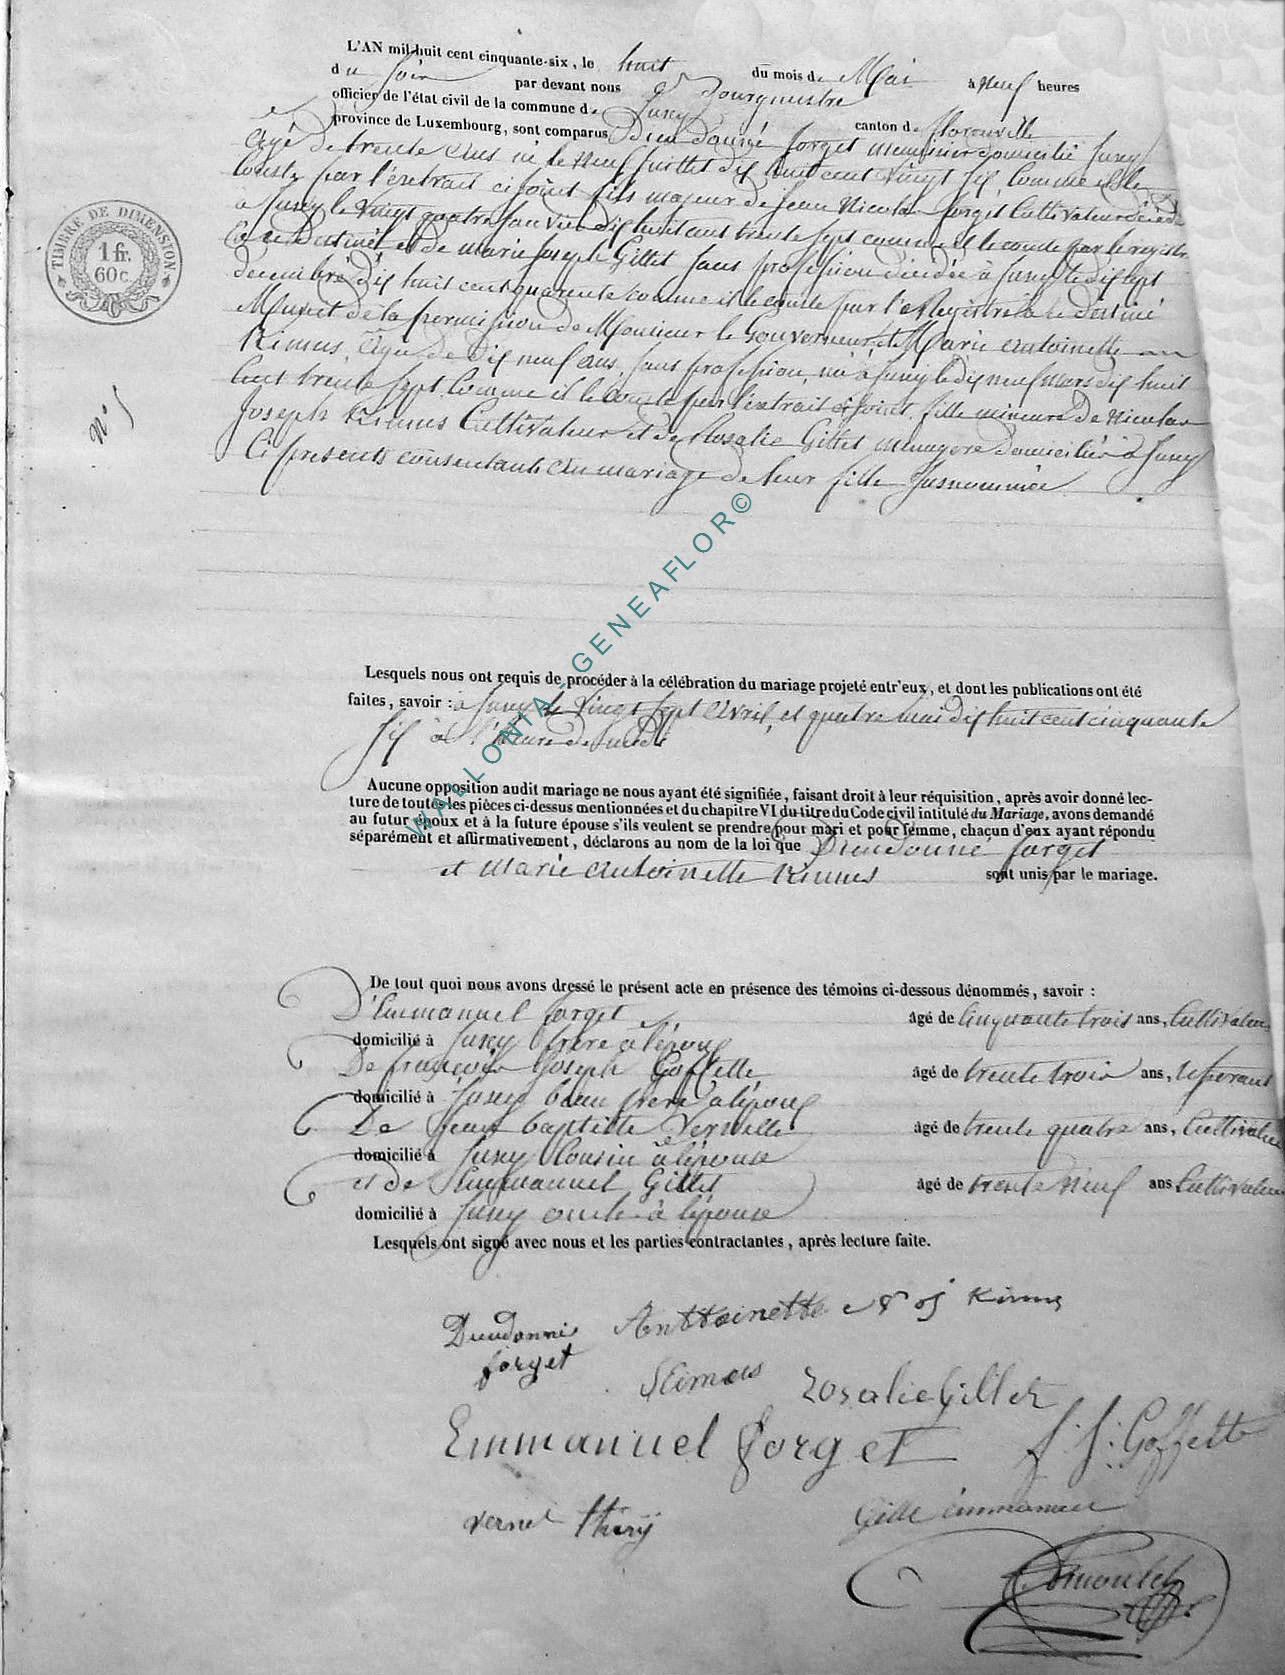 L'AN mil-huit cent cinquante-six, le huit du mois de Mai à neuf heures
du soir par devant nous Bourgmestre
officier de l'état civil de la commune de Jusey canton de florenville
province de Luxembourg, sont comparus Dieudonné forget menuisier domicilié Jusey
âgé de trente ans né le neuf Juillet dix huit cent vingt six, comme il le
conste par l'extrait ci joint fils majeur de Jean Nicolas forget Cultivateur décédé
à Jusey le vingt quatre Janvier dix huit cent trente sept comme il le conste par le registre
à ce destiné et de marie Joseph Gillet sans profession décédée à Jusey le dix sept
décembre dix huit cent quarente comme il le conste par le Registre à ce destiné
Muni de la permission de Monsieur le Gouverneur, et Marie Antoinette
Kimus, âgée de dix neuf ans, sans profession, née à Jusey le dix neuf mars dix huit
cent trente sept comme il le conste par l'extrait ci joint, fille mineure de Nicolas
Joseph Kimus Cultivateur et de Rosalie Gillet menagere domiciliés à Jusey
Ci presents consentants au mariage de leur fille susnommée
TIMBRE DE DIMENSION.
1 fr.
60 c.
N° 5
Lesquels nous ont requis de procéder à la célébration du mariage projeté entr'eux, et dont les publications ont été
faites, savoir : à Jusey le vingt sept Avril, et quatre mai dix huit cent cinquante
six à l'heure de midi
Aucune opposition audit mariage ne nous ayant été signifiée, faisant droit à leur réquisition, après avoir donné lec-
ture de toutes les pièces ci-dessus mentionnées et du chapitre VI du titre du Code civil intitulé du Mariage, avons demandé
au futur époux et à la future épouse s'ils veulent se prendre pour mari et pour femme, chacun d'eux ayant répondu
séparément et affirmativement, déclarons au nom de la loi que Dieudonné forget
et Marie Antoinette Kimus sont unis par le mariage.
De tout quoi nous avons dressé le présent acte en présence des témoins ci-dessous dénommés, savoir :
D'Emmanuel forget âgé de Cinquante trois ans, Cultivateur
domicilié à Jusey frère à l'époux
De françois Joseph Goffette âgé de trente trois ans,
domicilié à Jusey beau frere à l'époux
De Jean baptiste Vernelle âgé de trente quatre ans, Cultivateur
domicilié à Jusey Cousin à l'épouse
et de Emmanuel Gillet âgé de trente neuf ans Cultivateur
domicilié à Jusey oncle à l'épouse
Lesquels ont signé avec nous et les parties contractantes, après lecture faite.
Dieudonné Anttoinette Kimus
forget
Kimus Rosalie Gillet
Emmanuel forget f. j. Goffette
vernel thiery Gille emmanuel
WALLONIA-GENEAFLOR©